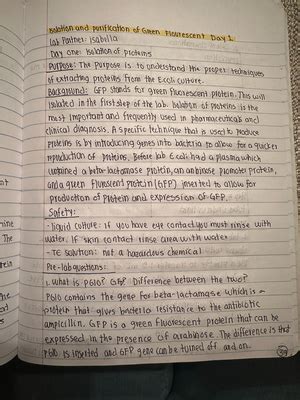 Isolation and Purification of Green Flourescent Day 1
Lab Partner: Isabella
Day one: Isolation of proteins
Purpose: The Purpose is to understand the proper techniques
of extracting proteins from the E.coli culture.
Background: GFP stands for green fluorescent protein. This will
isolated in the first step of the lab. Isolation of proteins is the
most important and frequently used in pharmaceuticals and
clinical diagnosis. A specific technique that is used to produce
proteins is by introducing genes into bacteria to allow for a quicker
reproduction of proteins. Before lab E.coli had a plasma which
contained a beta-lactamase protein, an arabinose promoter protein,
and a green fluorescent protein (GFP) inserted to allow for
production of protein and expression of GFP.
Safety:
- liquid culture: if you have eye contact you must rinse with
water. If skin contact rinse area with water
- TE solution: not a hazardous chemical
Pre-lab questions:
1. What is pGlo? GFP? Difference between the two?
PGlo contains the gene for beta-lactamase which is a
protein that gives bacteria resistance to the antibiotic
ampicillin. GFP is a green fluorescent protein that can be
expressed in the presence of arabinose. The difference is that
pGlo is inserted and GFP gene can be turned off and on.